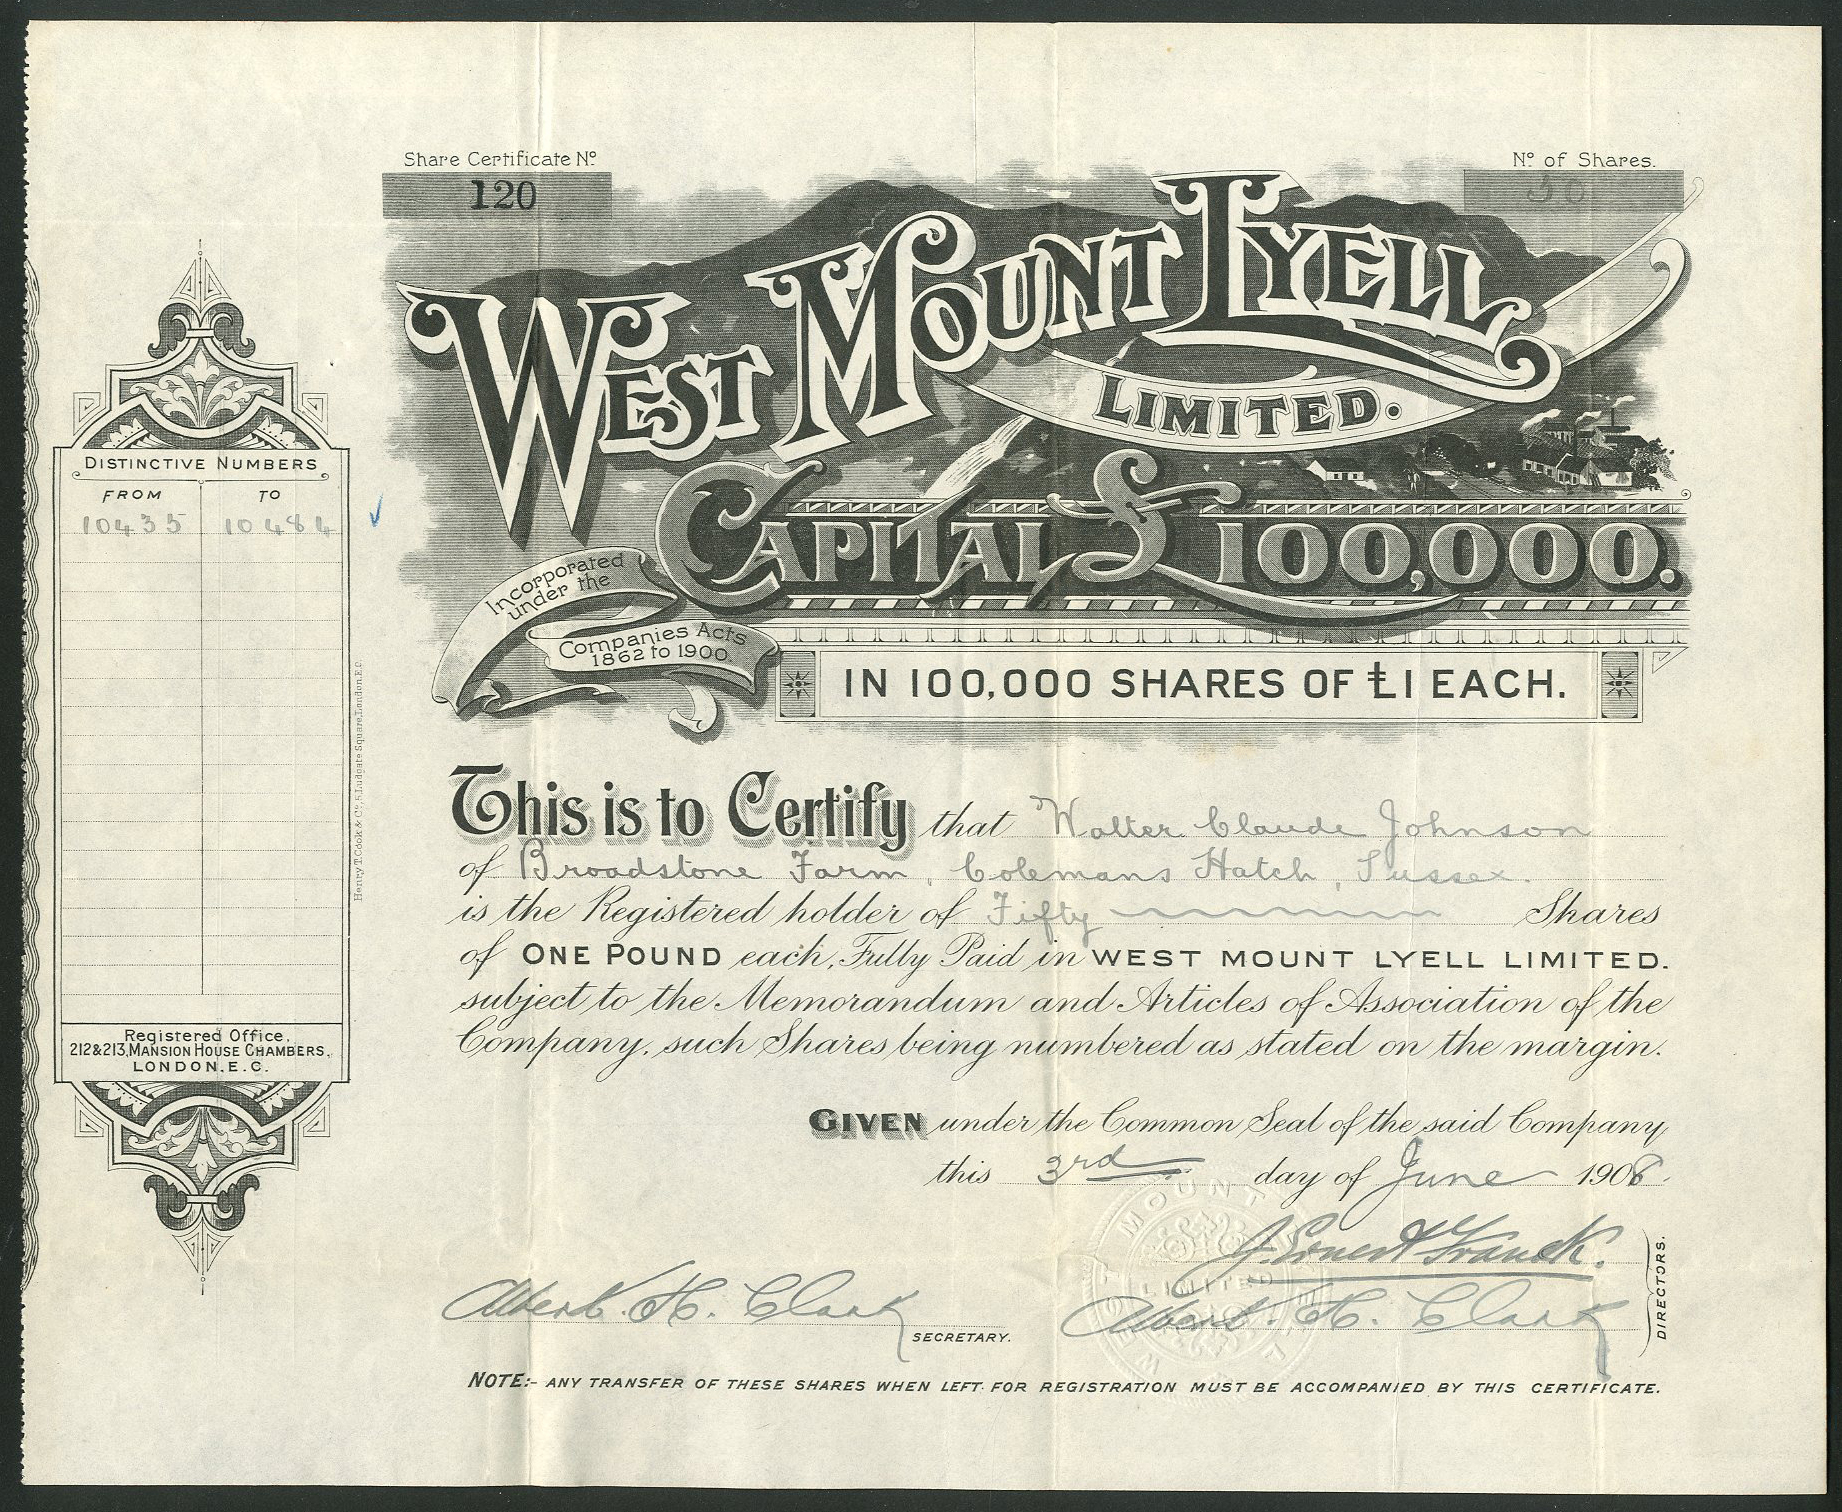 Share Certificate No.
120
No. of Shares.
50
WEST MOUNT LYELL
LIMITED.
CAPITAL £100,000.
Incorporated
under the
Companies Acts
1862 to 1900.
IN 100,000 SHARES OF £1 EACH.
DISTINCTIVE NUMBERS
FROM TO
10435 10484
Henry T. Cook & Co., 5, Ludgate Square, London. E.C.
Registered Office,
212 & 213, MANSION HOUSE CHAMBERS,
LONDON. E.C.
This is to Certify that Walter Claude Johnson
of Broadstone Farm, Colemans Hatch, Sussex.
is the Registered holder of Fifty Shares
of ONE POUND each, Fully Paid in WEST MOUNT LYELL LIMITED.
subject to the Memorandum and Articles of Association of the
Company, such Shares being numbered as stated on the margin.
GIVEN under the Common Seal of the said Company
this 3rd day of June 1908.
J. Ernest Franck.
Albert. H. Clark
SECRETARY.
Albert. H. Clark
DIRECTORS.
WEST MOUNT LYELL
LIMITED
NOTE:- ANY TRANSFER OF THESE SHARES WHEN LEFT FOR REGISTRATION MUST BE ACCOMPANIED BY THIS CERTIFICATE.